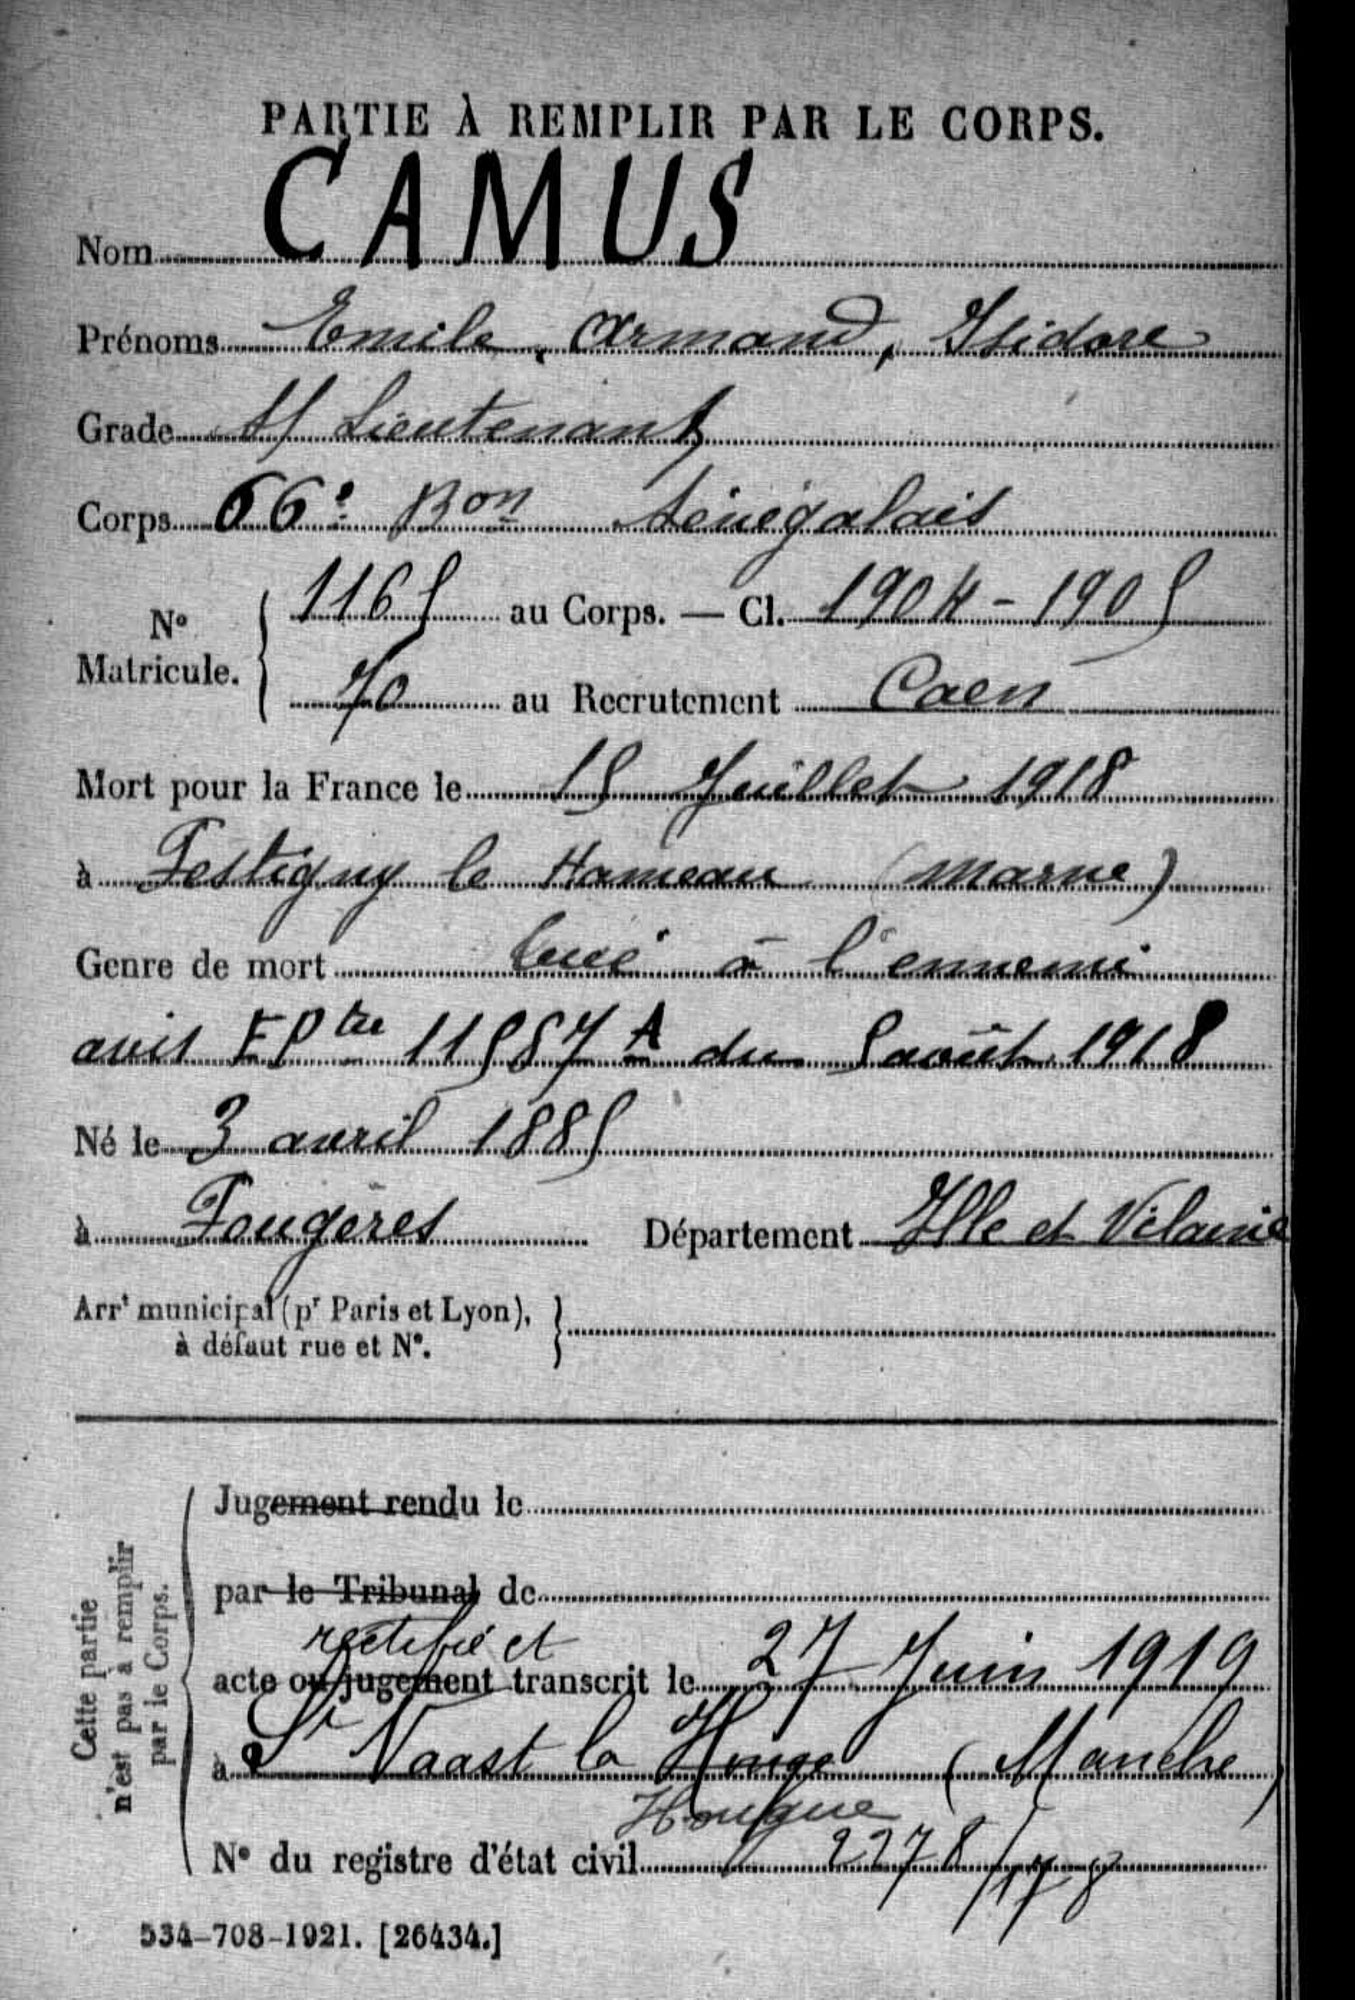 PARTIE À REMPLIR PAR LE CORPS.
Nom CAMUS
Prénoms Emile, Armand, Isidore
Grade S/ Lieutenant
Corps 66e Bon Sénégalais
No Matricule. { 1165 au Corps. — Cl. 1904-1905
70 au Recrutement Caen
Mort pour la France le 15 Juillet 1918
à Festigny le Hameau (Marne)
Genre de mort tué à l'ennemi
avis du 5 août 1918
Né le 3 avril 1885
à Fougères Département Ille et Vilaine
Arrt municipal (pr Paris et Lyon), }
à défaut rue et No.
Cette partie
n'est pas à remplir
par le Corps.
Jugement rendu le
par le Tribunal de
rectifié et
acte ou jugement transcrit le 27 Juin 1919
à St Vaast la Houge (Manche)
Hougue
No du registre d'état civil 2278/178
534-708-1921. [26434.]